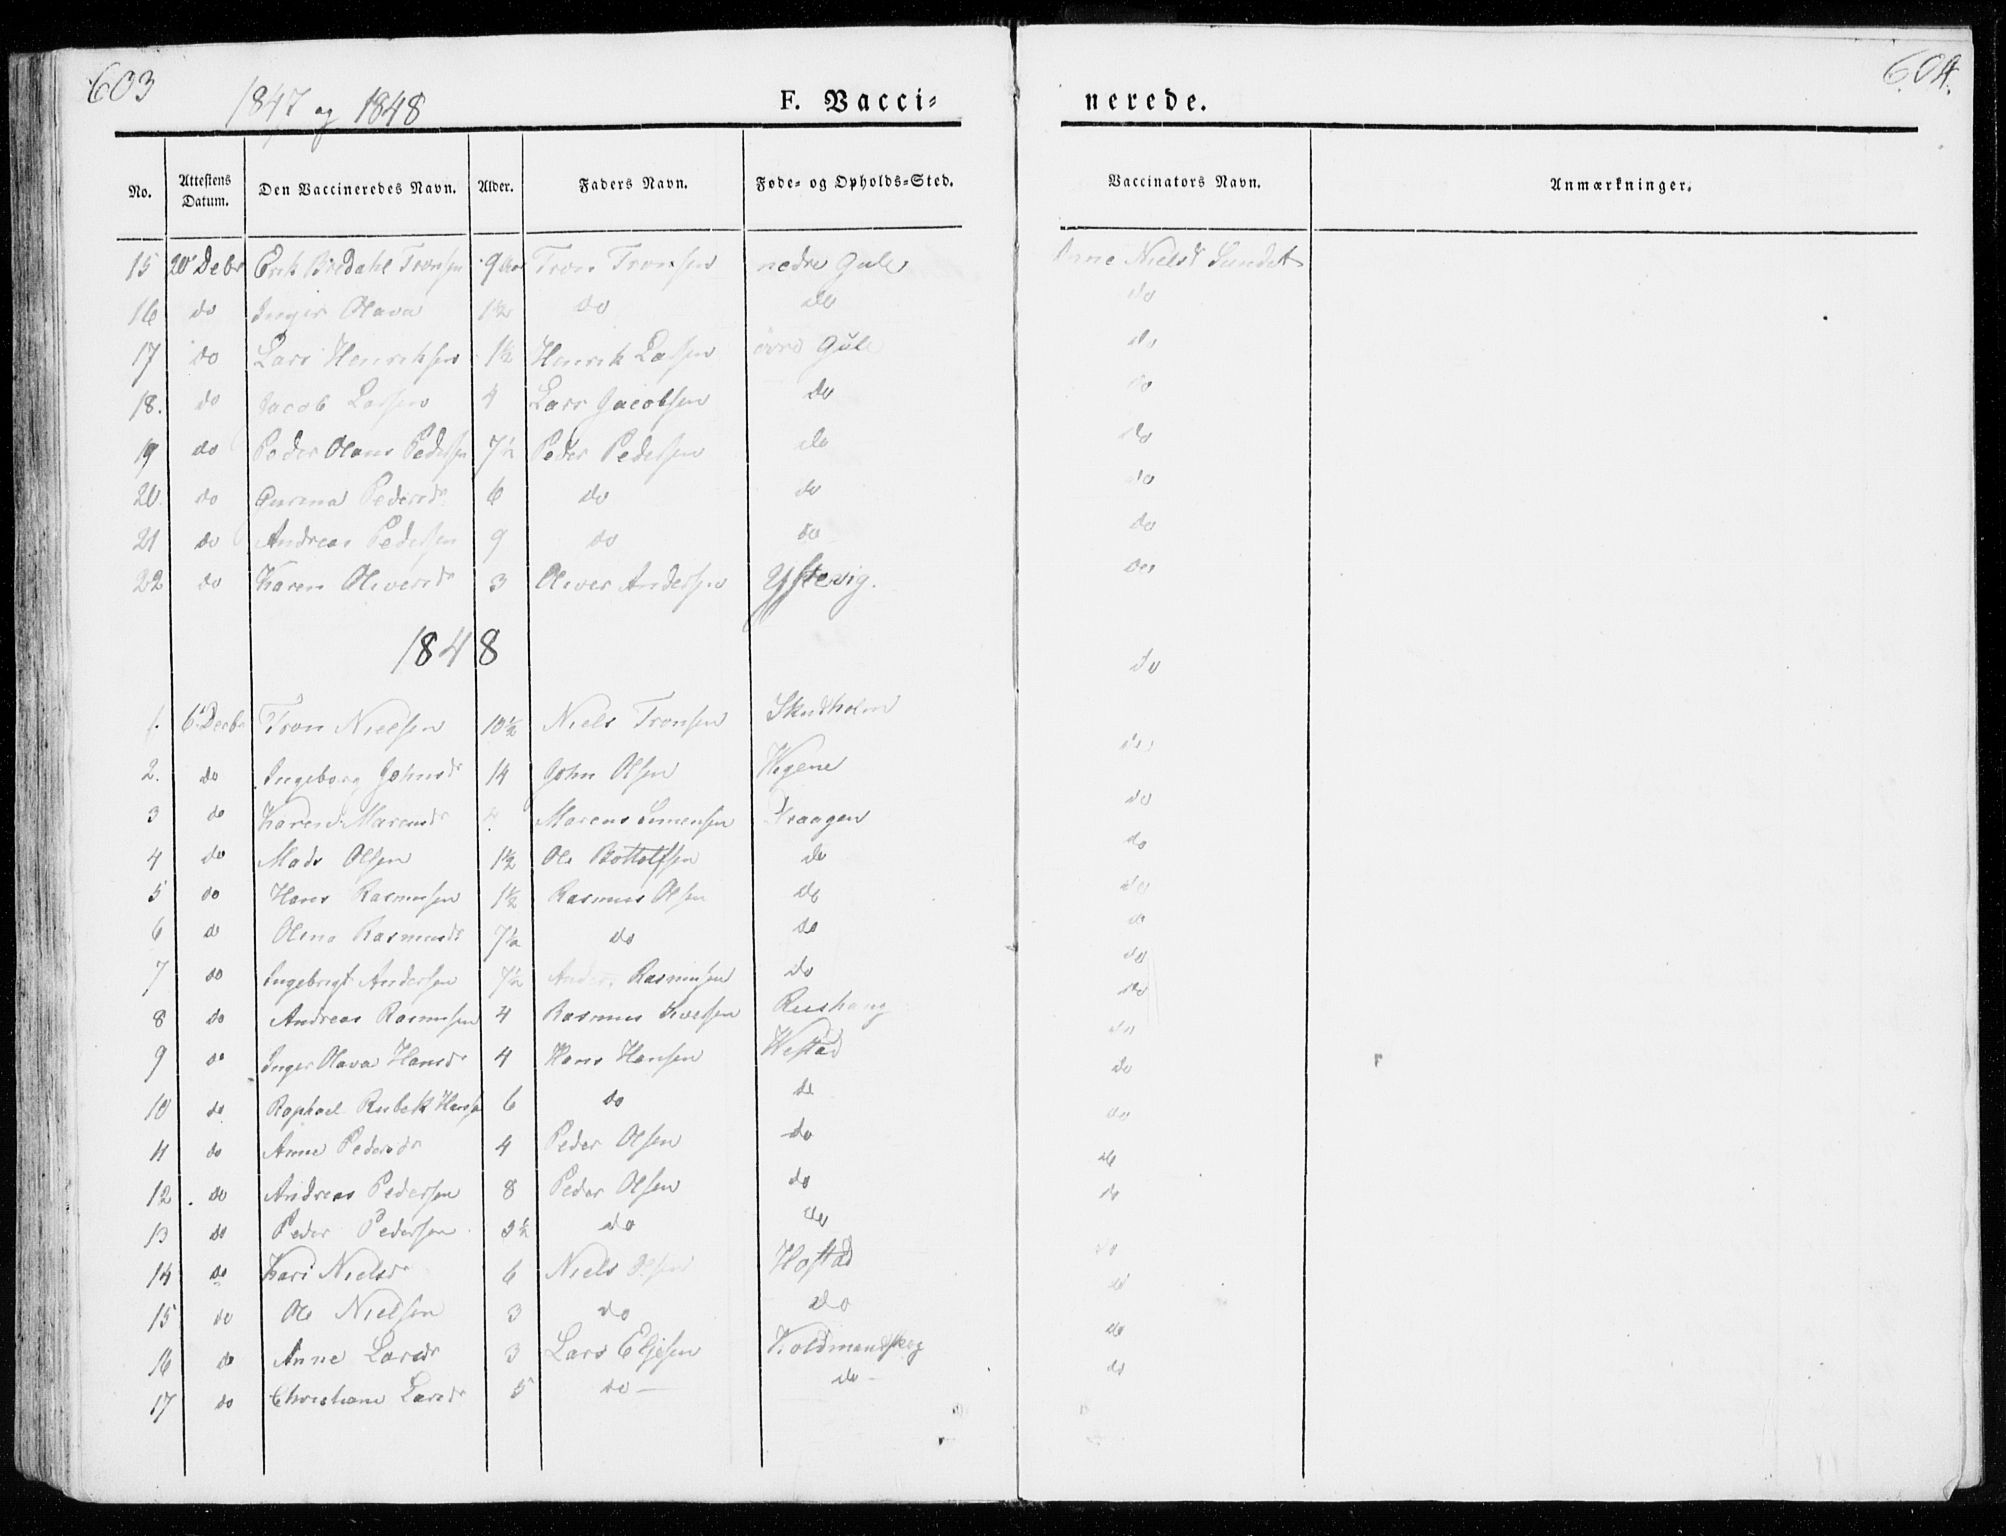 603
604.
1847 og 1848
F. Vacci= nerede.
No. Attestens Datum. Den Vaccineredes Navn. Alder. Faders Navn. Føde- og Opholds=Sted. Vaccinators Navn. Anmærkninger.
15 20 Debr Erik Bredahl Tronsen 9 Aar Tron Tronsen nedre Gule Anne Nielsdr Sundet
16 do Inger Olava 1½ do do do
17 do Lars Henriksen 1½ Henrik Larsen øvre Gule do
18. do Jacob Larsen 4 Lars Jacobsen do do
19 do Peder Olaus Pedersen 7½ Peder Pedersen do do
20. do Gurina Pedersdr 6 do do do
21 do Andreas Pedersen 9 do do do
22 do Karen Oliversdr 3 Oliver Andersen Ystevig. do
1848
do
1. 6 Decbr Tron Nielsen 10½ Niels Tronsen Skutholm do
2. do Ingeborg Johnsdr 14 John Olsen Hegene do
3 do Karen Marensdr Marens Simensen Kraagen do
4 do Mads Olsen 1½ Ole Bottolfsen do do
5 do Hans Rasmusen 1½ Rasmus Olsen do do
6 do Olina Rasmusdr 7½ do do do
7 do Ingebrigt Andersen 7½ Anders Rasmusen do do
8 do Andreas Rasmusen 4 Rasmus Iversen Rushaug do
9 do Inger Olava Hansdr 4 Hans Hansen Westad do
10 do Raphael Rubek Hansen 6 do do do
11 do Anne Pedersdr 4 Peder Olsen do do
12 do Andreas Pedersen 8 Peder Olsen do do
13 do Peder Pedersen ½ do do do
14 do Kari Nielsdr 6 Niels Olsen Hostad do
15 do Ole Nielsen 3 do do do
16 do Anne Larsdr 3 Lars Eljesen Koldmandskog do
17 do Christiane Larsdr 5 do — do —